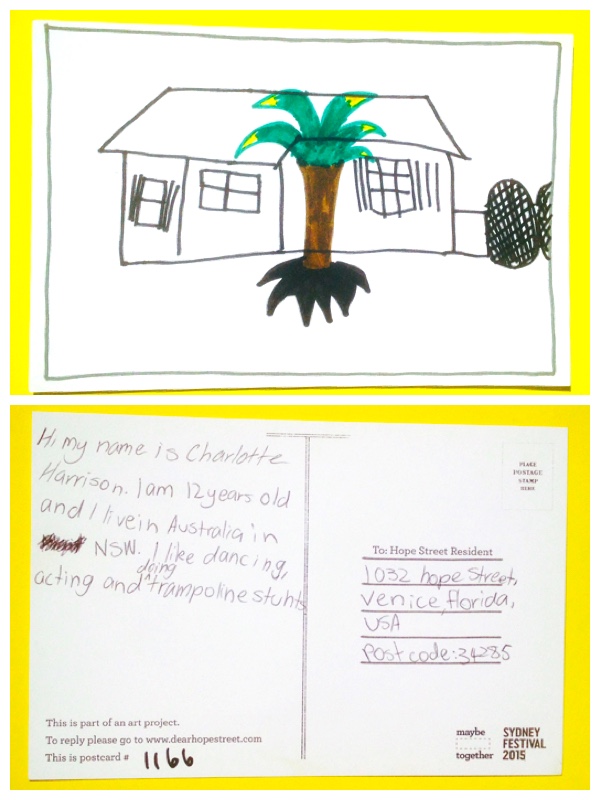 Hi my name is Charlotte
Harrison. I am 12 years old
and I live in Australia in
NSW. I like dancing,
doing
acting and ^ trampoline stunts
PLACE
POSTAGE
STAMP
HERE
To: Hope Street Resident
1032 hope Street,
Venice, florida,
USA
Postcode: 34285
This is part of an art project.
To reply please go to www.dearhopestreet.com
This is postcard # 1166
maybe
together
SYDNEY
FESTIVAL
2015